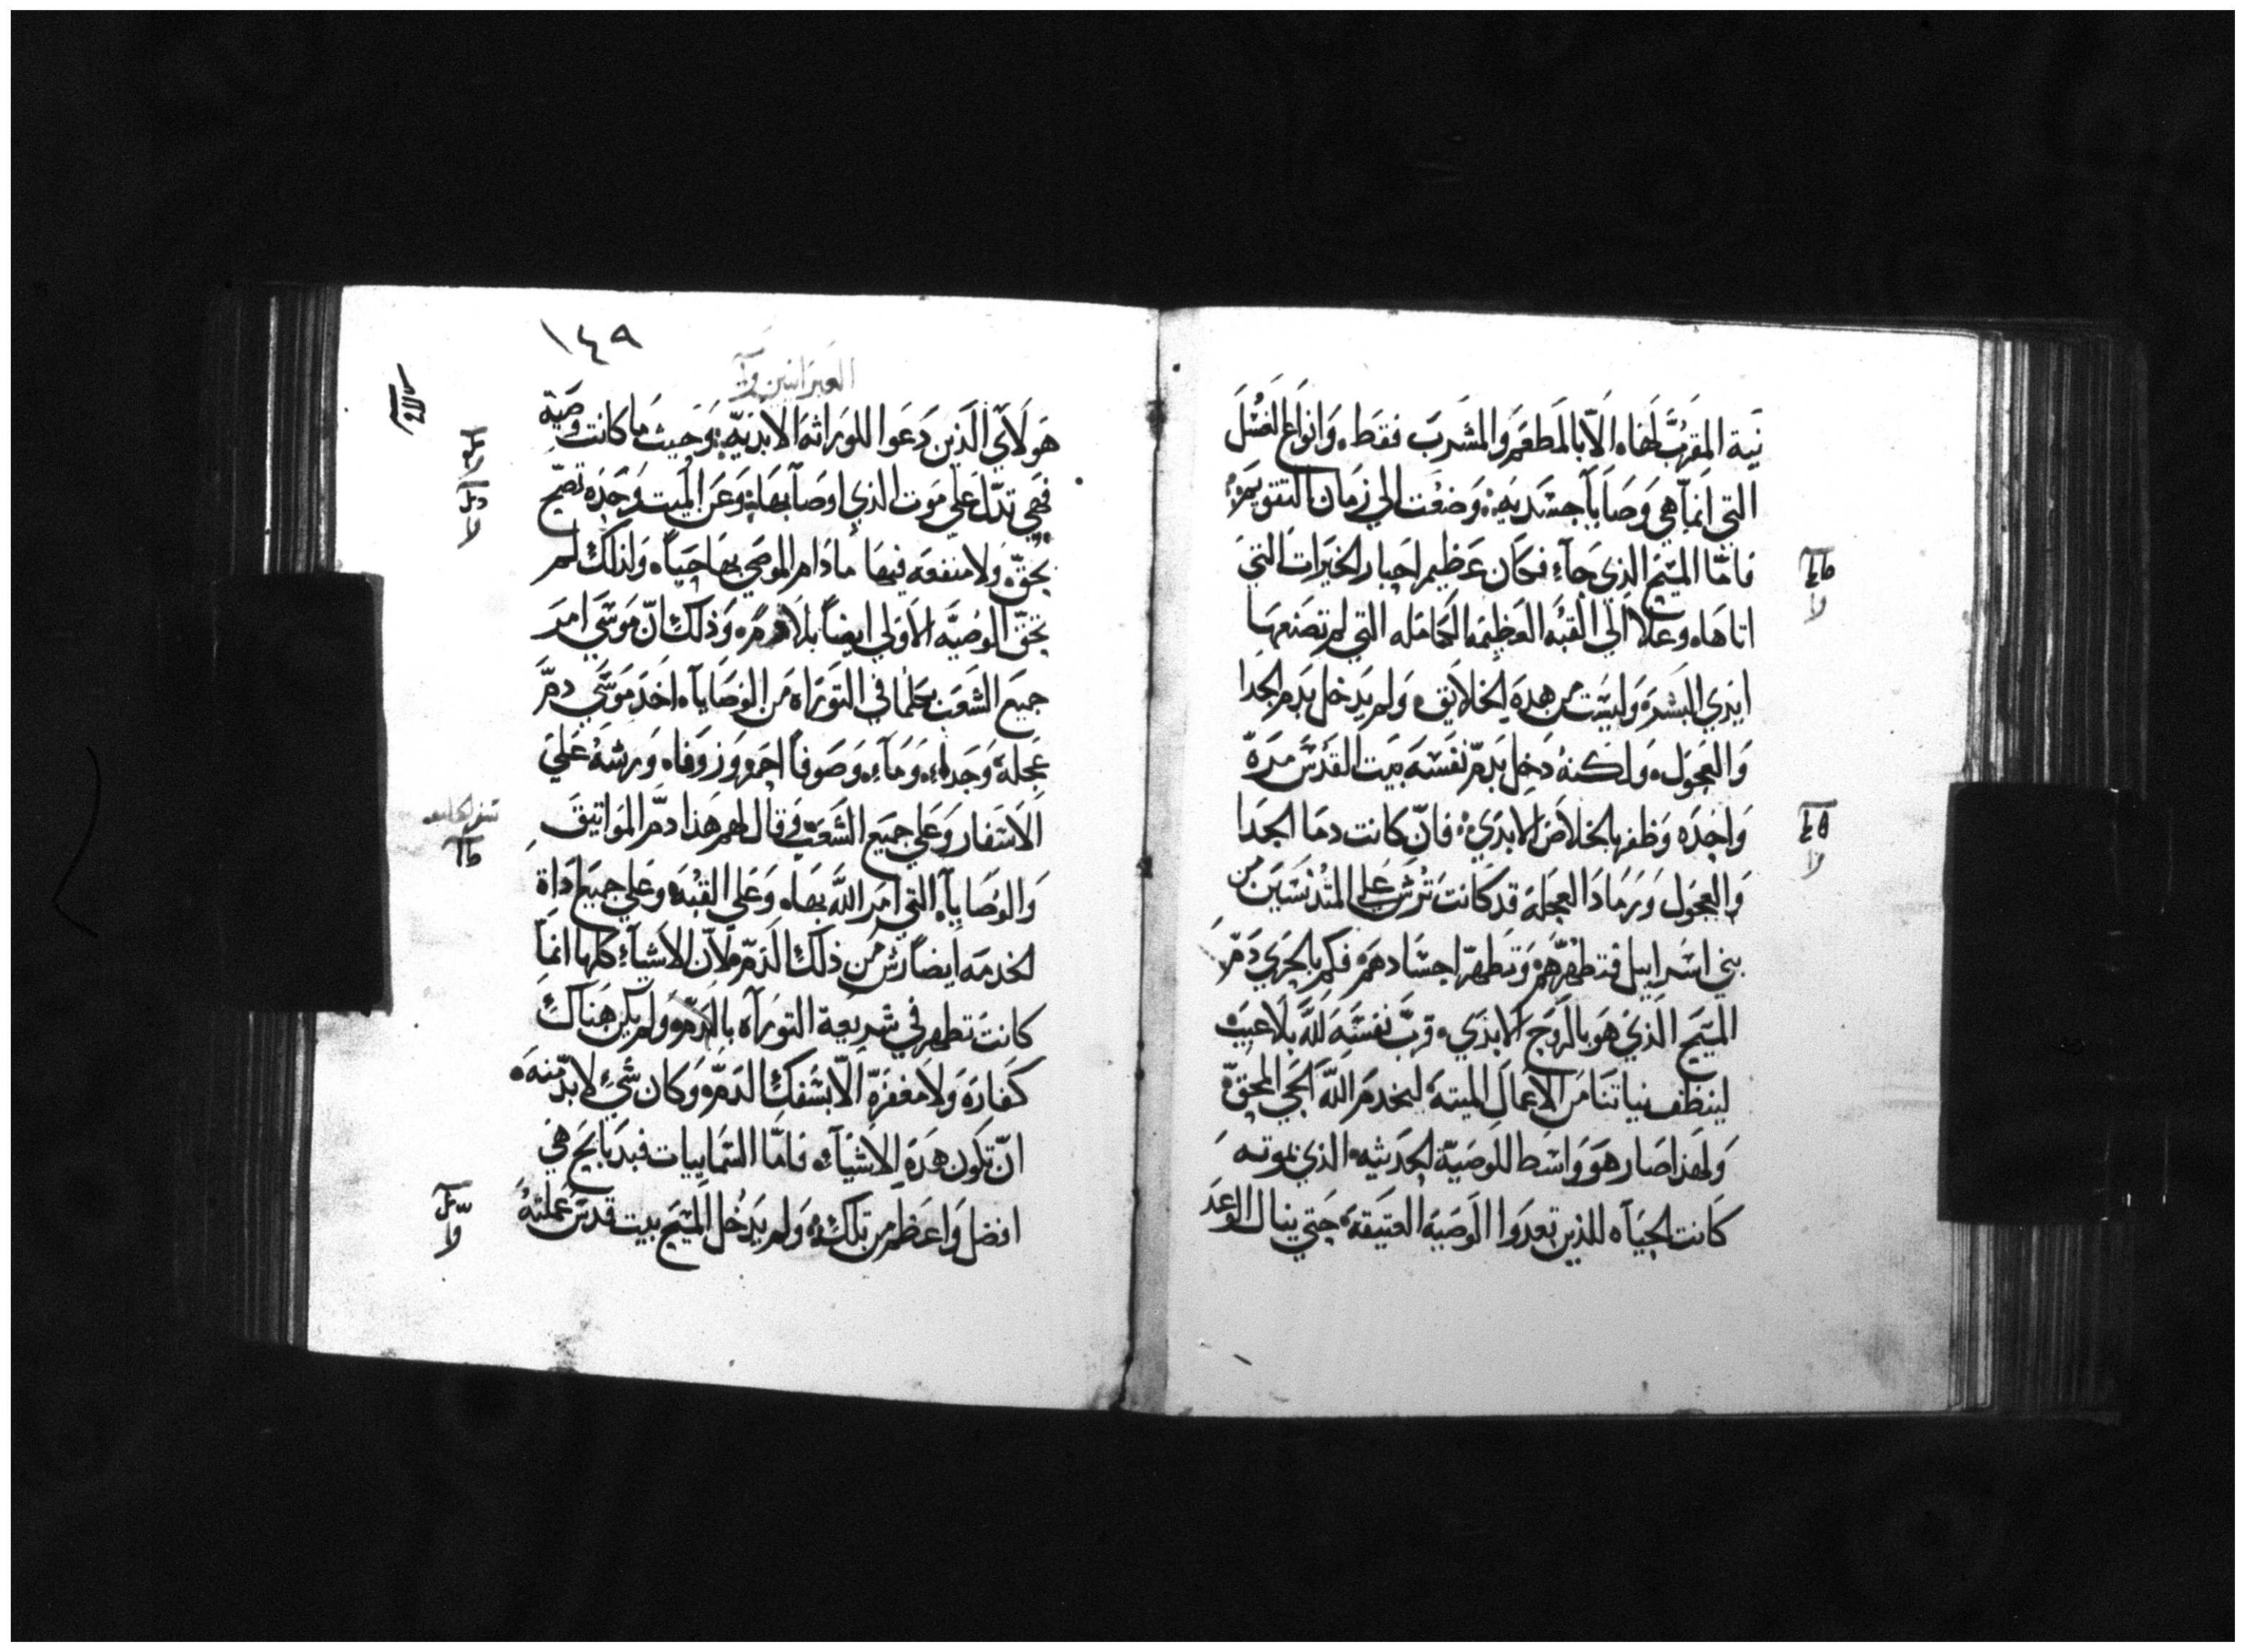 نية المقرب لهاه الا بالمطعم والمشرب فقط، وانواع الغسل
التي انما هي وصايا جسدية، وضعت الي زمان التقويم،
فاما المسيح الذي جاء فكان عظيم احبار الخيرات التي
اتاها، وعلا الي القبه العظيمه الكامله التي لم تصنعها
ايدي البشر، وليست من هده الخلايق، ولم يدخل بدم الجدا
والعجول، ولكنه دخل بدم نفسه بيت القدس مره
واحده وظفر بالخلاص الابدي، فان كانت دما الجدا
والعجول ورماد العجله قد كانت ترش علي المتدنسين من
بني اسراييل فتطهرهم وتطهر اجسادهم، فكم بالحري دم
المسيح الذي هو بالروح الابدي، قرب نفسه لله بلا عيب،
لينظف نياتنا من الاعمال الميته، لنخدم الله الحي المحق،
ولهذا صار هو واسط للوصية الحديثه، الذي بموته
كانت الحياه للذين تعدوا الوصيه العتيقه، حتي ينال الوعد
١٤٩
العبرانيين
هولاي الذين دعوا للوراثه الابديه، وحيث ما كانت وصية
فهي تدل علي موت الذي اوصا بها، وعن الميت وحده تصح
بحق، ولا منفعه فيها ما دام الموصي بها حيا، ولذلك لم
تحق الوصيه الاولي ايضا بلا دم، وذلك ان موسي امر
جميع الشعب بكلما في التوراه من الوصايا، اخد موسي دم
عجلة وجداء، وماء، وصوفا احمر وزوفا، ورشه علي
الاسفار وعلي جميع الشعب، وقال لهم هذا دم المواتيق
والوصايا، التي امر الله بها، وعلي القبه وعلي جميع اداة
الخدمه ايضا رش من ذلك الدم، لان الاشياء كلها انما
كانت تطهر في شريعة التوراه بالدم، ولم يكن هناك
كفاره ولا مغفره الا بسفك الدم، وكان شي لا بد منه،
ان تكون هذه الاشياء، فاما السماييات فبدبايح هي
افضل واعظم من تلك، ولم يدخل المسيح بيت قدس عملته